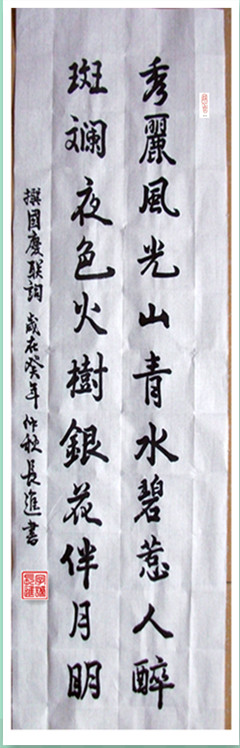 秀麗風光山青水碧惹人醉
斑斕夜色火樹銀花伴月明
撰國慶联詞 歲在癸年仲秋長進書